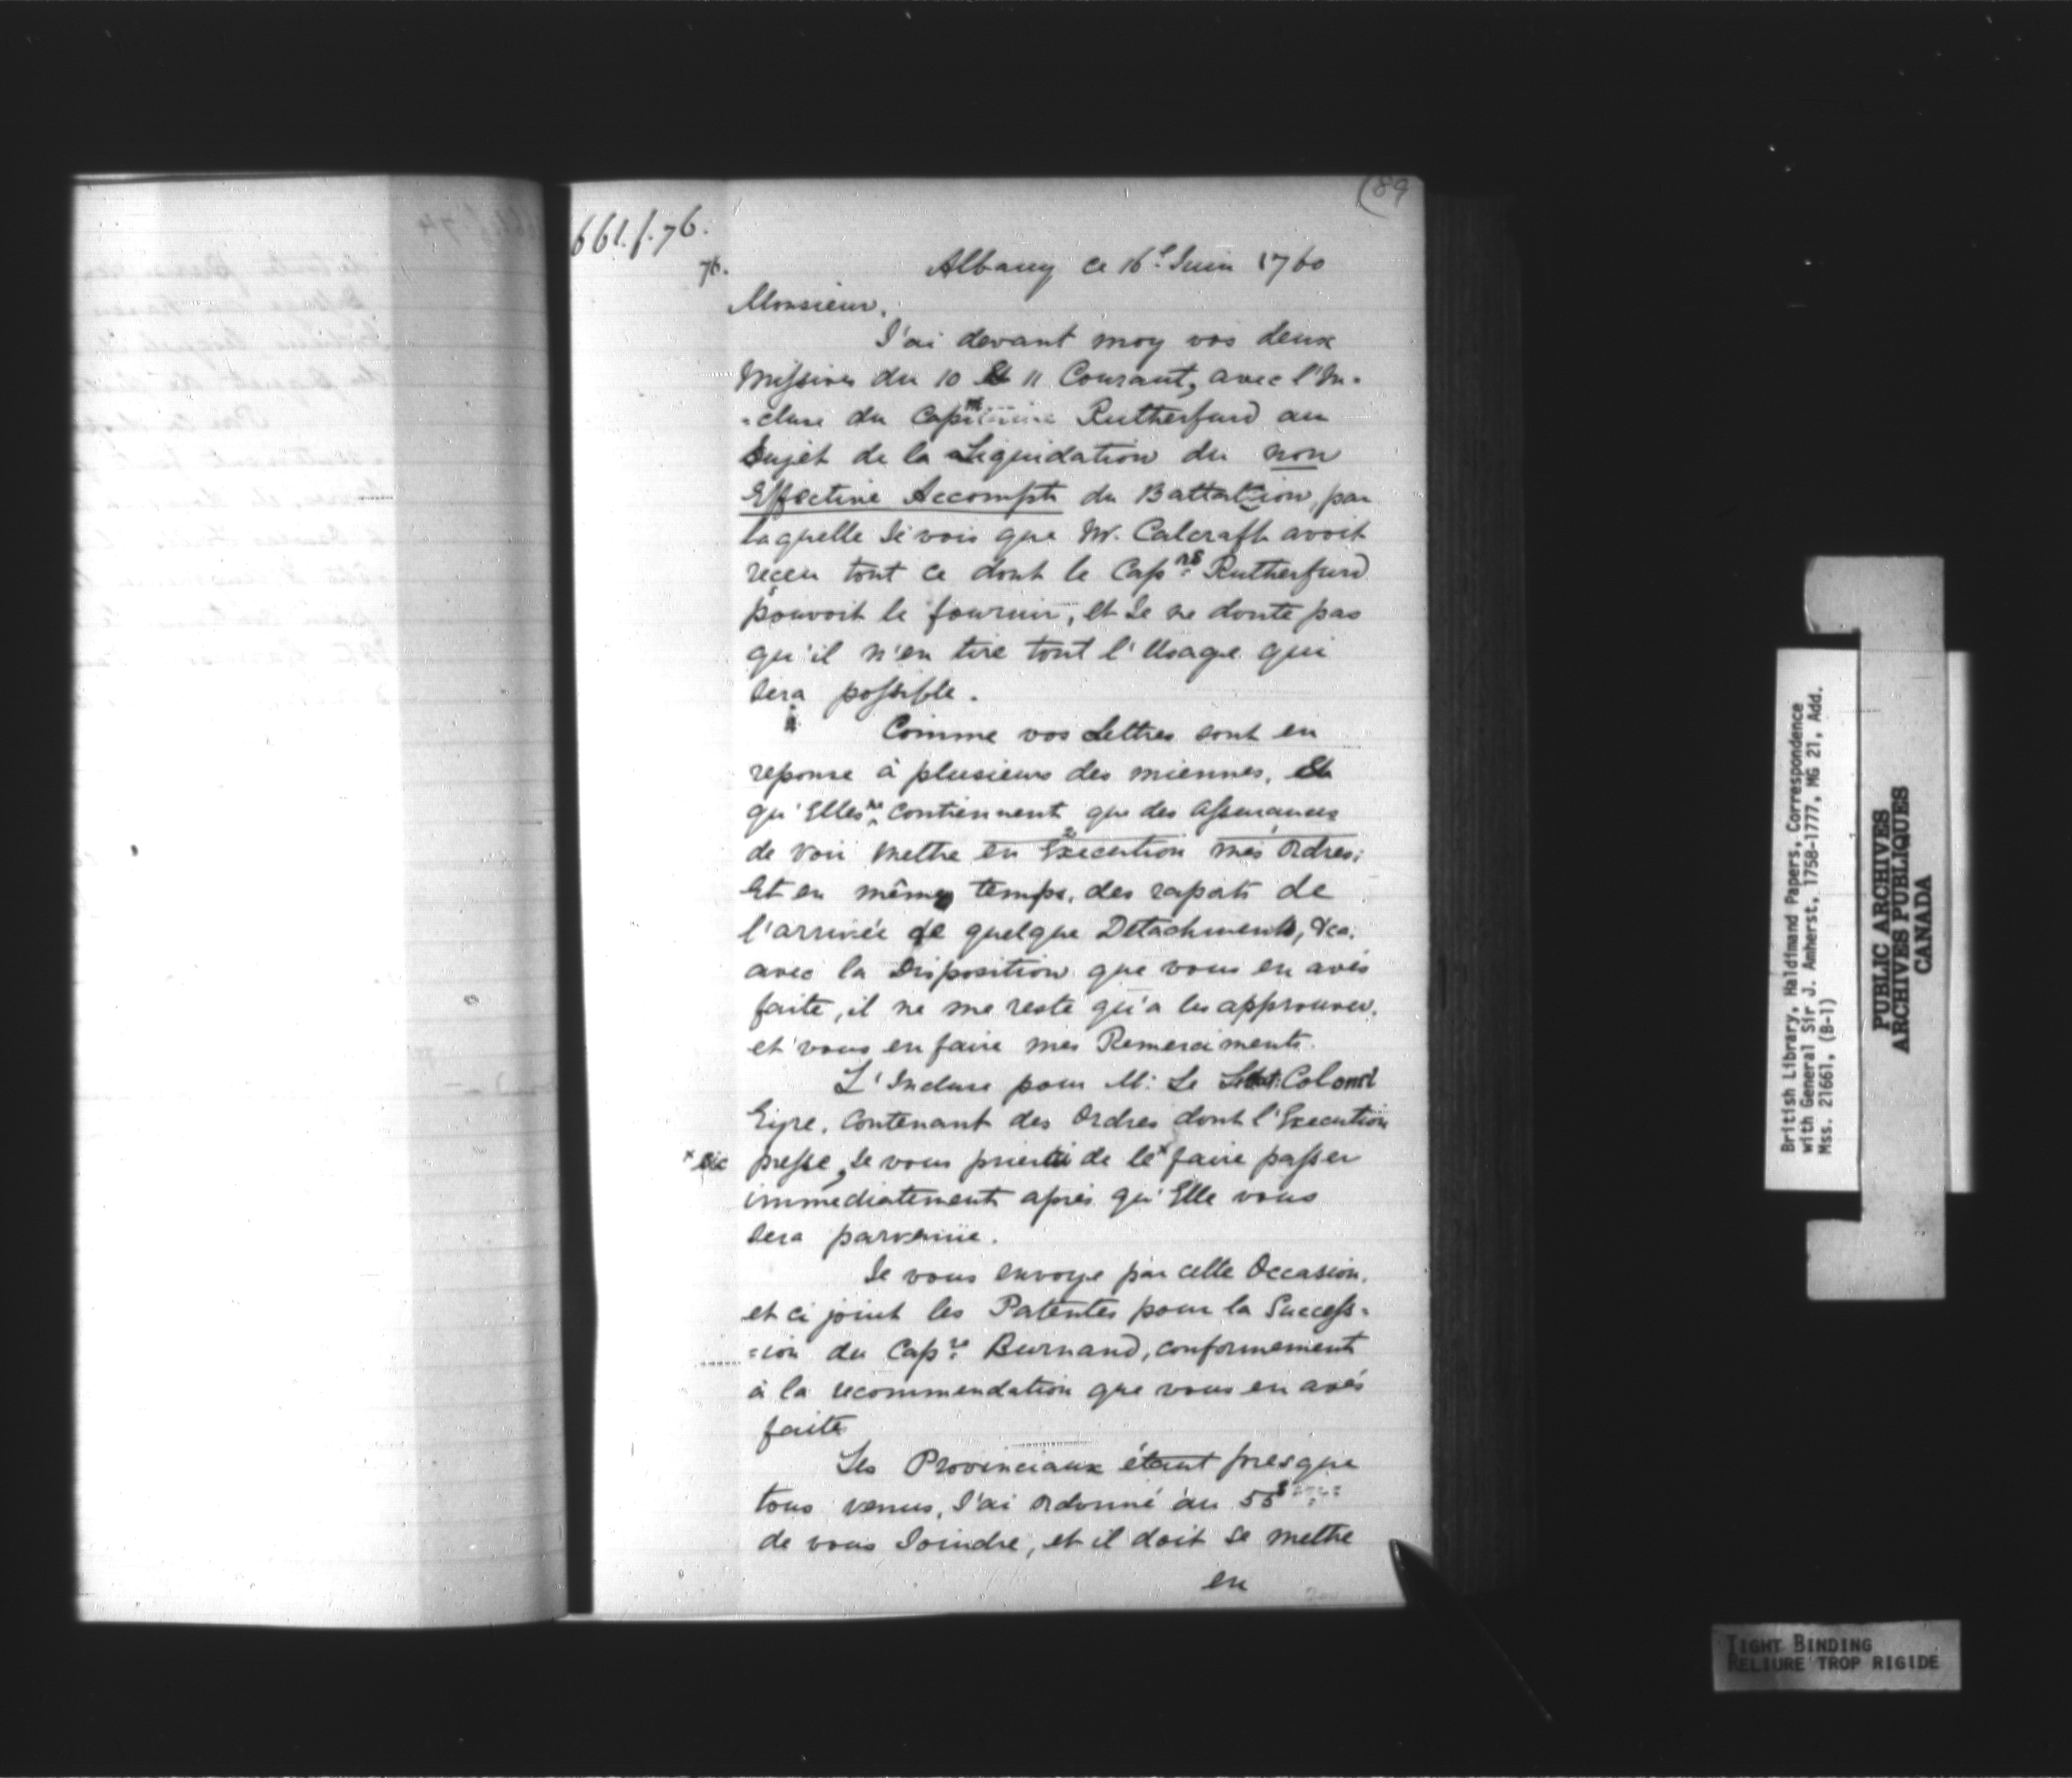 (89
661.f.76.
76.
Albany ce 16e Juin 1760
Monsieur,
J'ai devant moy vos deux
Missives du 10 Et 11 Courant, avec l'In-
-cluse du Capne Rutherfurd au
Sujet de la Liquidation du non
Effective Accompts du Battallion, par
laquelle Je vois que Mr. Calcraft avoit
reçeu tout ce dont le Capne Rutherfurd
pouvoit le fournir, et Je ne doute pas
qu'il n'en tire tout l'Usage qui
sera possible.
Comme vos Lettres sont en
reponse à plusieurs des miennes, Et
qu'Elles ne Contiennent que des Assurances
de voir Mettre en Execution mes Ordres;
Et en même temps, des raports de
l'arrivée de quelque Detachments, &ca.
avec la Disposition que vous en avés
faite, il ne me reste qu'a les approuver,
et vous en faire mes Remerciments.
L'Incluse pour M: Le Lieut: Colonel
Eyre, Contenant des Ordres dont l'Execution
x sic presse, Je vous prie de le x faire passer
immediatement après qu'Elle vous
sera parvenüe.
Je vous envoye par cette Occasion,
et ci joint les Patentes pour la Success-
=ion du Capne Burnand, conformement
à la recommendation que vous en avés
faite
Les Provinciaux étant presque
tous venus, J'ai ordonné au 55e
de vous Joindre, et il doit se mettre
en
British Library, Haldimand Papers, Correspondence
with General Sir J. Amherst, 1758-1777, MG 21, Add.
Mss. 21661, (B-1)
PUBLIC ARCHIVES
ARCHIVES PUBLIQUES
CANADA
TIGHT BINDING
RELIURE TROP RIGIDE